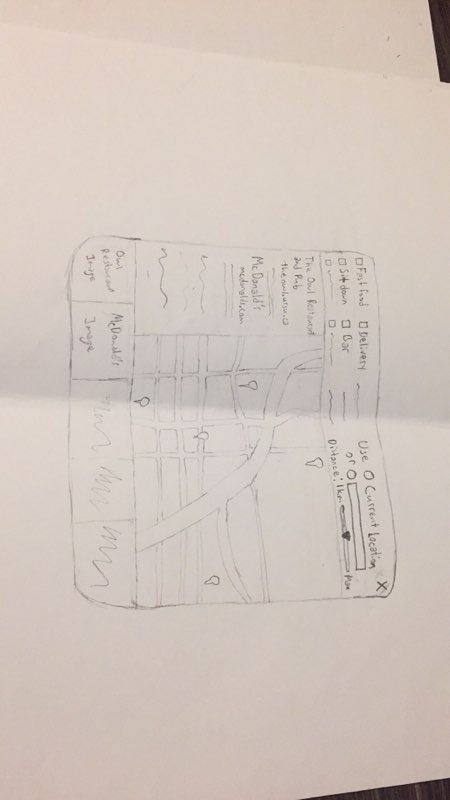 Fast food
Delivery
Sit down
Bar
Use
Current Location
or
Distance: 1km
Max
X
The Owl Restaurant
and Pub
McDonald's
mcdonalds.com
Owl
Restaurant
Image
McDonald's
Image